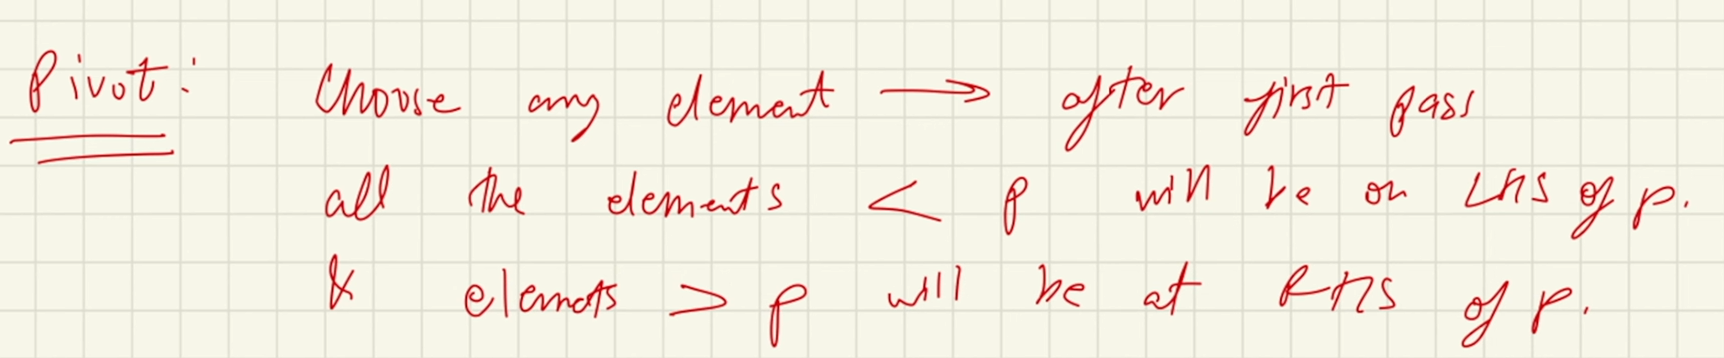 Pivot: Choose any element → after first pass
all the elements < p will be on LHS of p.
& elemets > p will be at RHS of p.